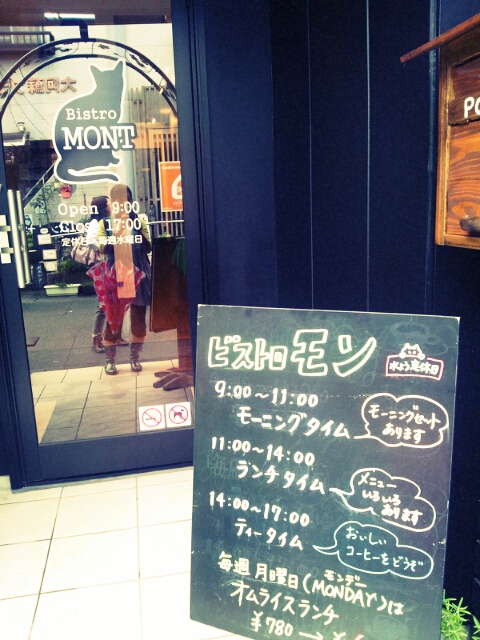 Bistro
MONT
Open 9:00
Close 17:00
定休日 毎週水曜日
PO
ビストロ モン
水よう定休日
9:00～11:00
モーニングタイム
モーニングセット
あります
11:00～14:00
ランチタイム
メニュー
いろいろ
あります
14:00～17:00
ティータイム
おいしい
コーヒーをどうぞ
毎週月曜日(MONDAY)は
モンデー
オムライスランチ
¥780